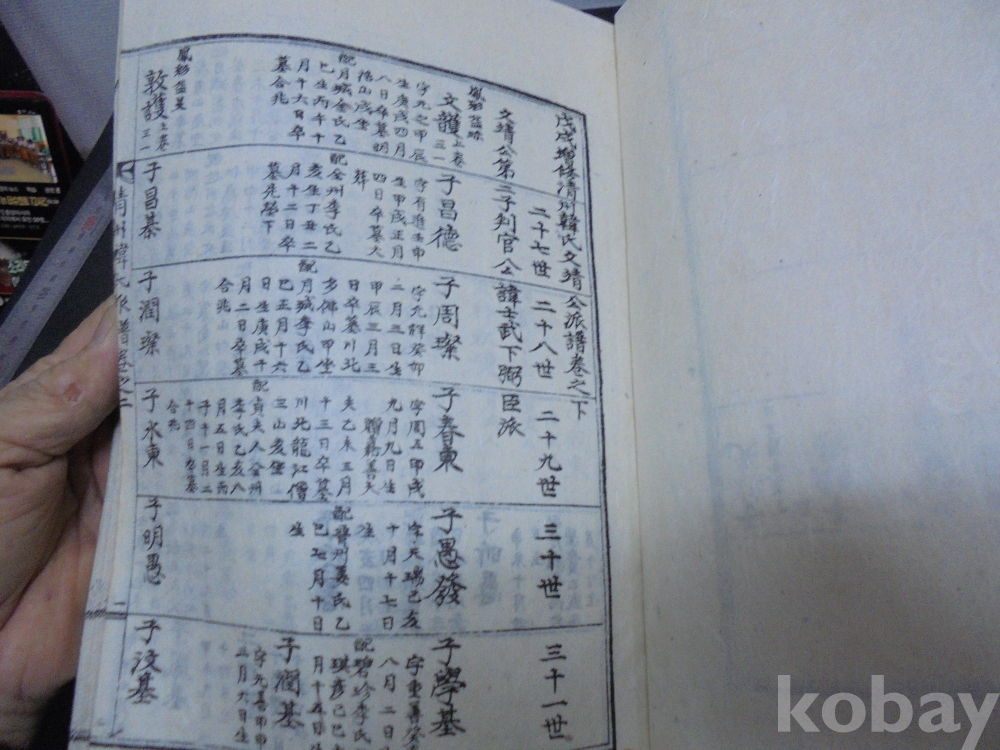 戊戌增修淸州韓氏文靖公派譜卷之下
文靖公第三子判官公諱士武下弼臣派
二十七世
二十八世
二十九世
三十世
三十一世
文護 上卷三一
字九之甲辰
生庚戌四月
八日卒墓明
配月城金氏乙
巳生丙午十
月十六日卒
墓合兆
子昌德
字有進壬申
生甲戌正月
四日卒墓大
配全州李氏乙
亥生丁丑二
月十二日卒
墓先塋下
子周璨
二月三日生
甲辰三月三
日卒墓川北
多佛山甲坐
配月城李氏乙
巳正月十六
日生庚戌十
月二日卒墓
合兆
子春東
字周五甲戌
九月九日生
贈嘉善大
夫乙未三月
十三日卒墓
川北龍江僧
三山亥坐
配貞夫人全州
李氏乙亥八
月五日生丙
子十一月二
十四日卒墓
合兆
子愚發
字天瑞己亥
十月十七日
生
配晉州姜氏乙
巳七月十日
生
子學基
字重喜癸
八月二日
子潤基
字元喜甲申
三月六日生
敦護 上卷三一
子昌泰
子潤璨
子永東
子明愚
子汶基
淸州韓氏派譜卷之下
一
kobay